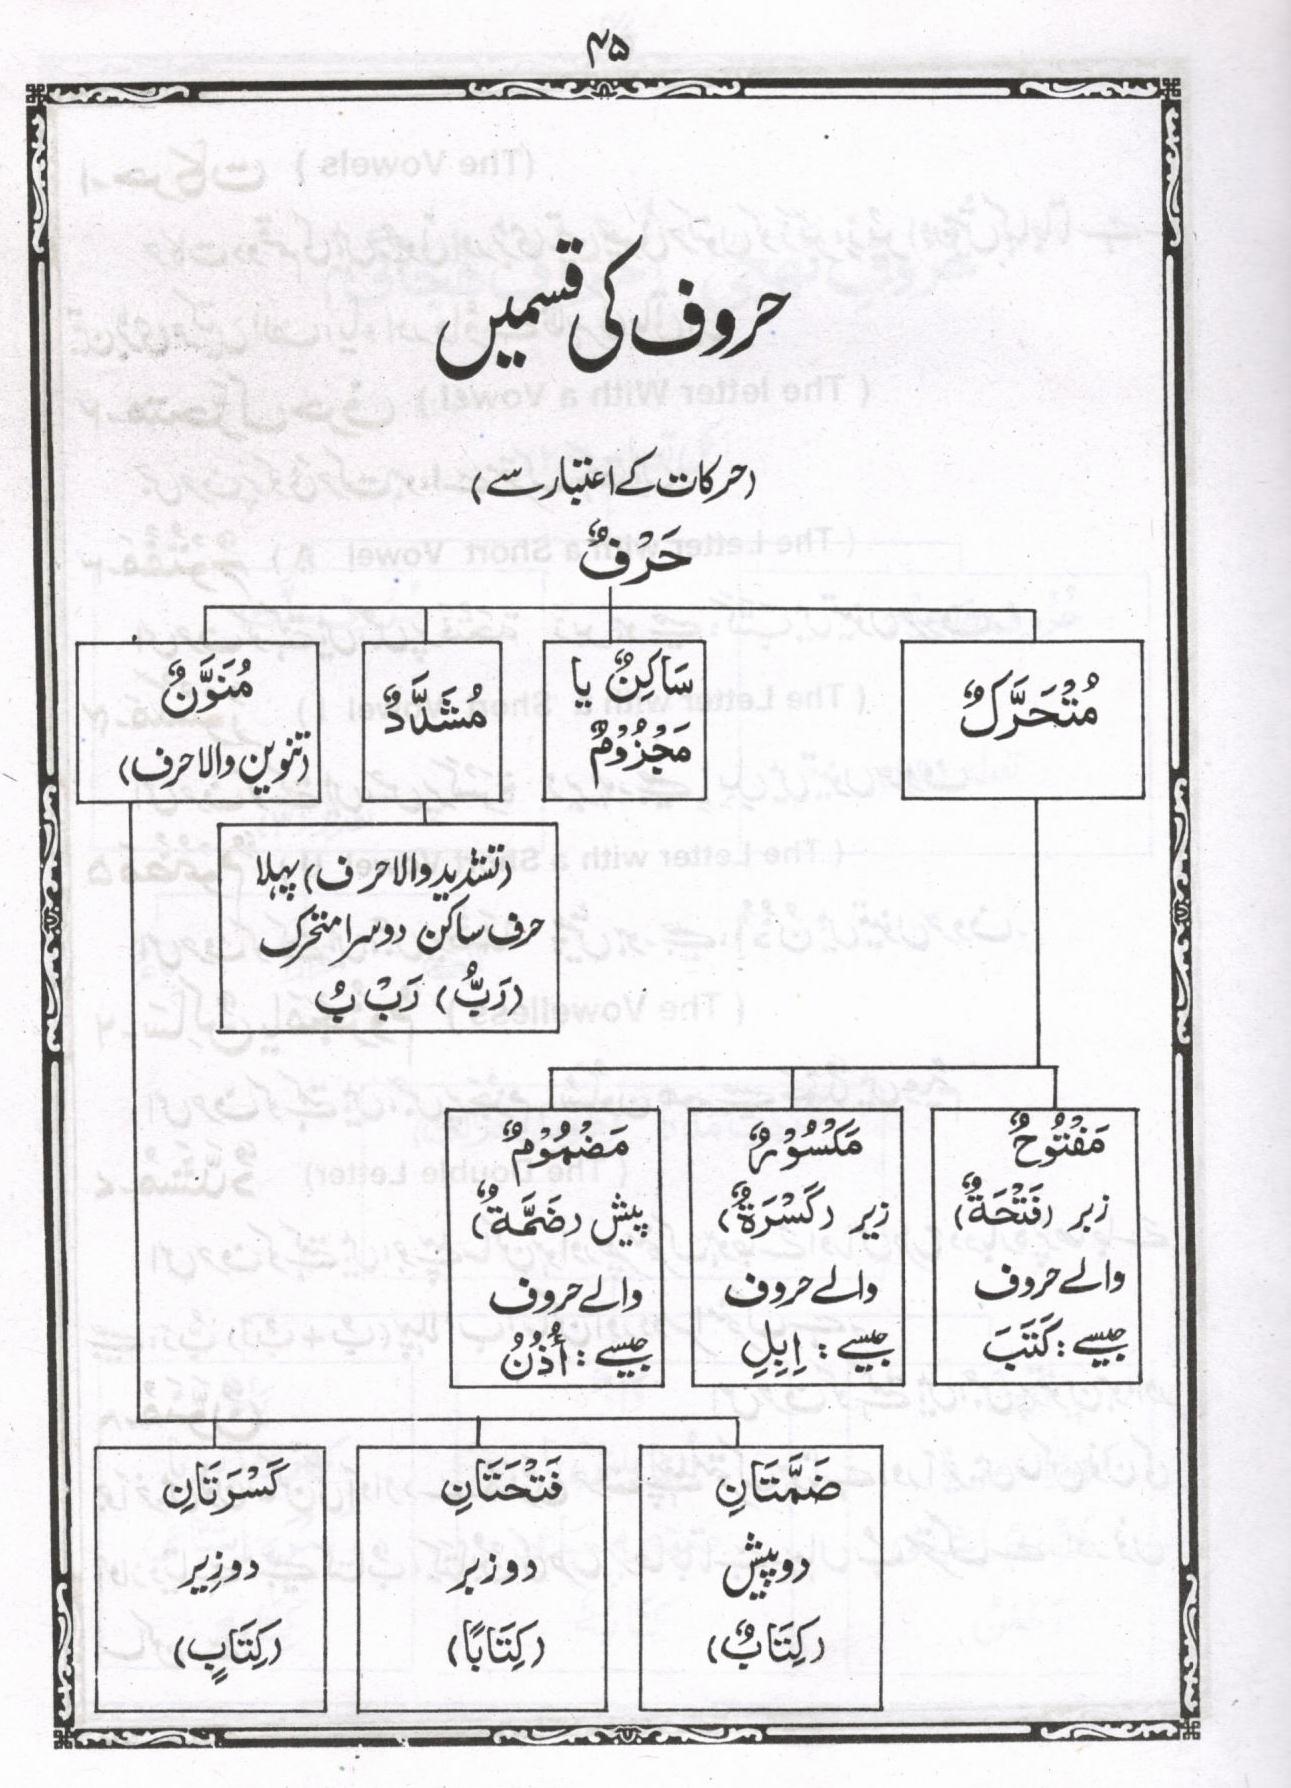 ۴۵
حروف کی قسمیں
(حرکات کے اعتبار سے)
حَرْفٌ
مُتَحَرَّكٌ
سَاكِنٌ يا
مَجْزُوْمٌ
مُشَدَّدٌ
مُنَوَّنٌ
(تنوین والا حرف)
(تشدید والا حرف) پہلا
حرف ساکن دوسرا متحرک
(رَبُّ) رَبْ بُ
مَفْتُوْحٌ
زبر (فَتْحَةٌ)
والے حروف
جیسے: كَتَبَ
مَكْسُوْرٌ
زیر (كَسْرَةٌ)
والے حروف
جیسے: اِبِلِ
مَضْمُوْمٌ
پیش (ضَمَّةٌ)
والے حروف
جیسے: أُذُنُ
ضَمَّتَانِ
دو پیش
(كِتَابٌ)
فَتْحَتَانِ
دو زبر
(كِتَابًا)
كَسْرَتَانِ
دو زِیر
(كِتَابٍ)